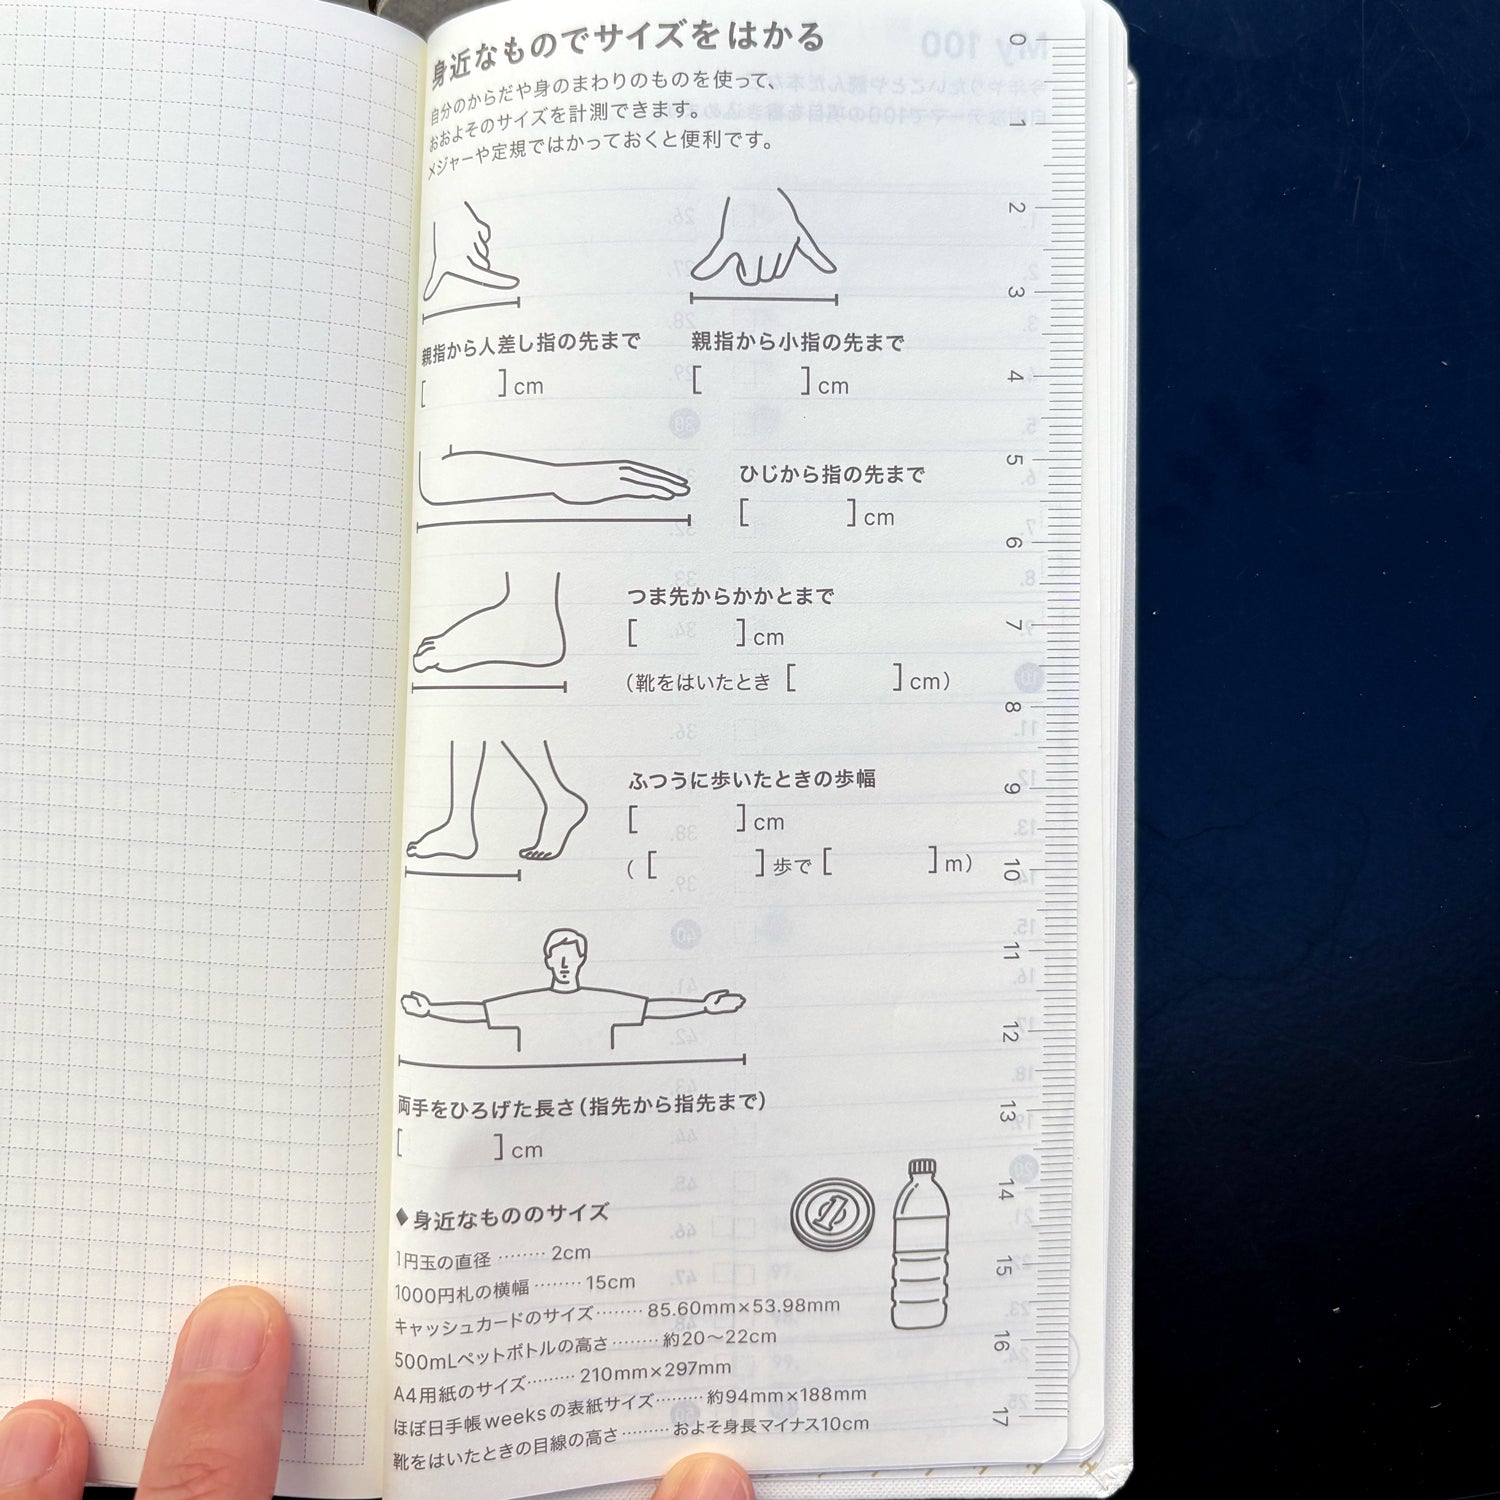 身近なものでサイズをはかる
自分のからだや身のまわりのものを使って、
おおよそのサイズを計測できます。
メジャーや定規ではかっておくと便利です。
親指から人差し指の先まで
[ ]cm
親指から小指の先まで
[ ]cm
ひじから指の先まで
[ ]cm
つま先からかかとまで
[ ]cm
(靴をはいたとき [ ]cm)
ふつうに歩いたときの歩幅
[ ]cm
( [ ]歩で [ ]m)
両手をひろげた長さ(指先から指先まで)
[ ]cm
◆身近なもののサイズ
1円玉の直径 ········ 2cm
1000円札の横幅 ········ 15cm
キャッシュカードのサイズ ········ 85.60mm×53.98mm
500mLペットボトルの高さ ········ 約20〜22cm
A4用紙のサイズ ········· 210mm×297mm
ほぼ日手帳weeksの表紙サイズ ········· 約94mm×188mm
靴をはいたときの目線の高さ ········· およそ身長マイナス10cm
1
0
1
2
3
4
5
6
7
8
9
10
11
12
13
14
15
16
17